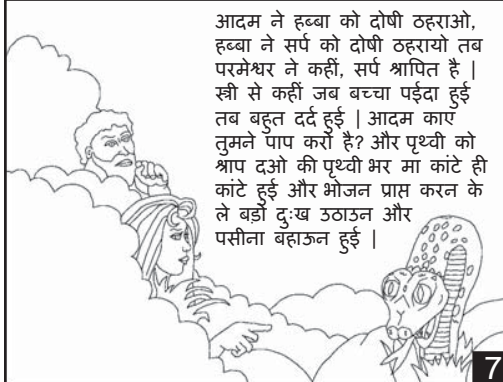 आदम ने हब्बा को दोषी ठहराओ,
हब्बा ने सर्प को दोषी ठहरायो तब
परमेश्वर ने कहीं, सर्प श्रापित है |
स्त्री से कहीं जब बच्चा पईदा हुई
तब बहुत दर्द हुई | आदम काए
तुमने पाप करो है? और पृथ्वी को
श्राप दओ की पृथ्वी भर मा कांटे ही
कांटे हुई और भोजन प्राप्त करन के
ले बड़ो दुःख उठाउन और
पसीना बहाऊन हुई |
7